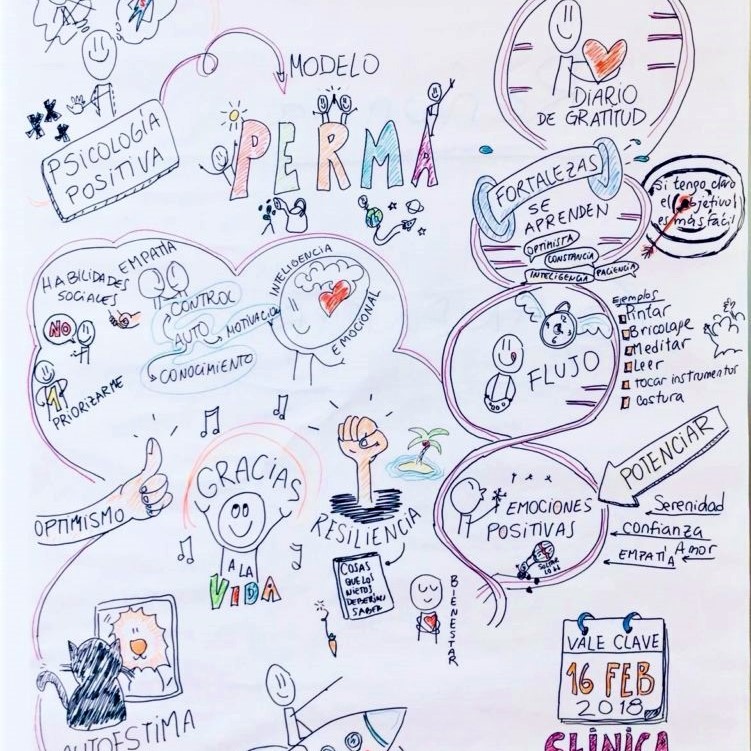 MODELO
PERMA
PSICOLOGÍA
POSITIVA
DIARIO
DE GRATITUD
FORTALEZAS
SE
APRENDEN
OPTIMISTA
CONSTANCIA
INTELIGENCIA
PACIENCIA
Si tengo claro
el objetivo!
es más fácil
HABILIDADES
SOCIALES
EMPATÍA
NO
1
PRIORIZARME
CONTROL
AUTO
MOTIVACIÓN
CONOCIMIENTO
INTELIGENCIA
EMOCIONAL
FLUJO
Ejemplos
Pintar
Bricolaje
Meditar
Leer
tocar instrumentos
costura
OPTIMISMO
GRACIAS
A LA
VIDA
RESILIENCIA
COSAS
QUE LOS
NIETOS
DEBERÍAN
SABER
BIENESTAR
EMOCIONES
POSITIVAS
POTENCIAR
Serenidad
confianza
Amor
EMPATÍA
AUTOESTIMA
VALE CLAVE
16 FEB
2018
CLÍNICA